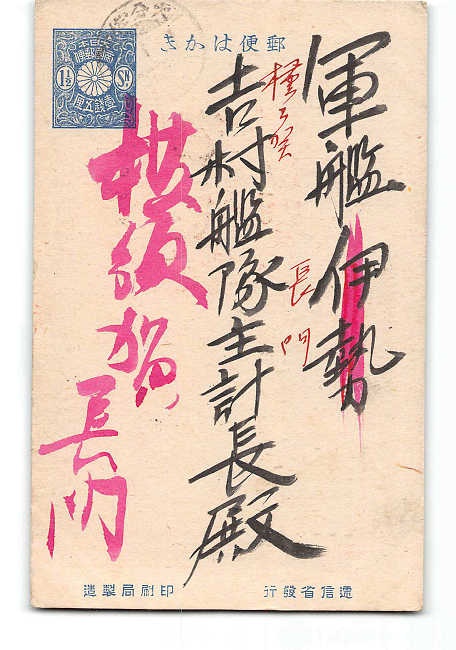 郵便はかき
大日本
帝國郵便
1½ SN
壹錢五厘
軍艦伊勢
長門
吉村艦隊主計長殿
横須賀
長門
遞信省發行
印刷局製造